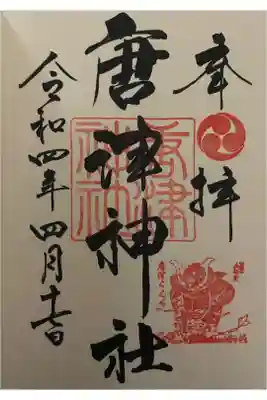 奉拝
唐津神社
令和四年四月十七日
唐津神社